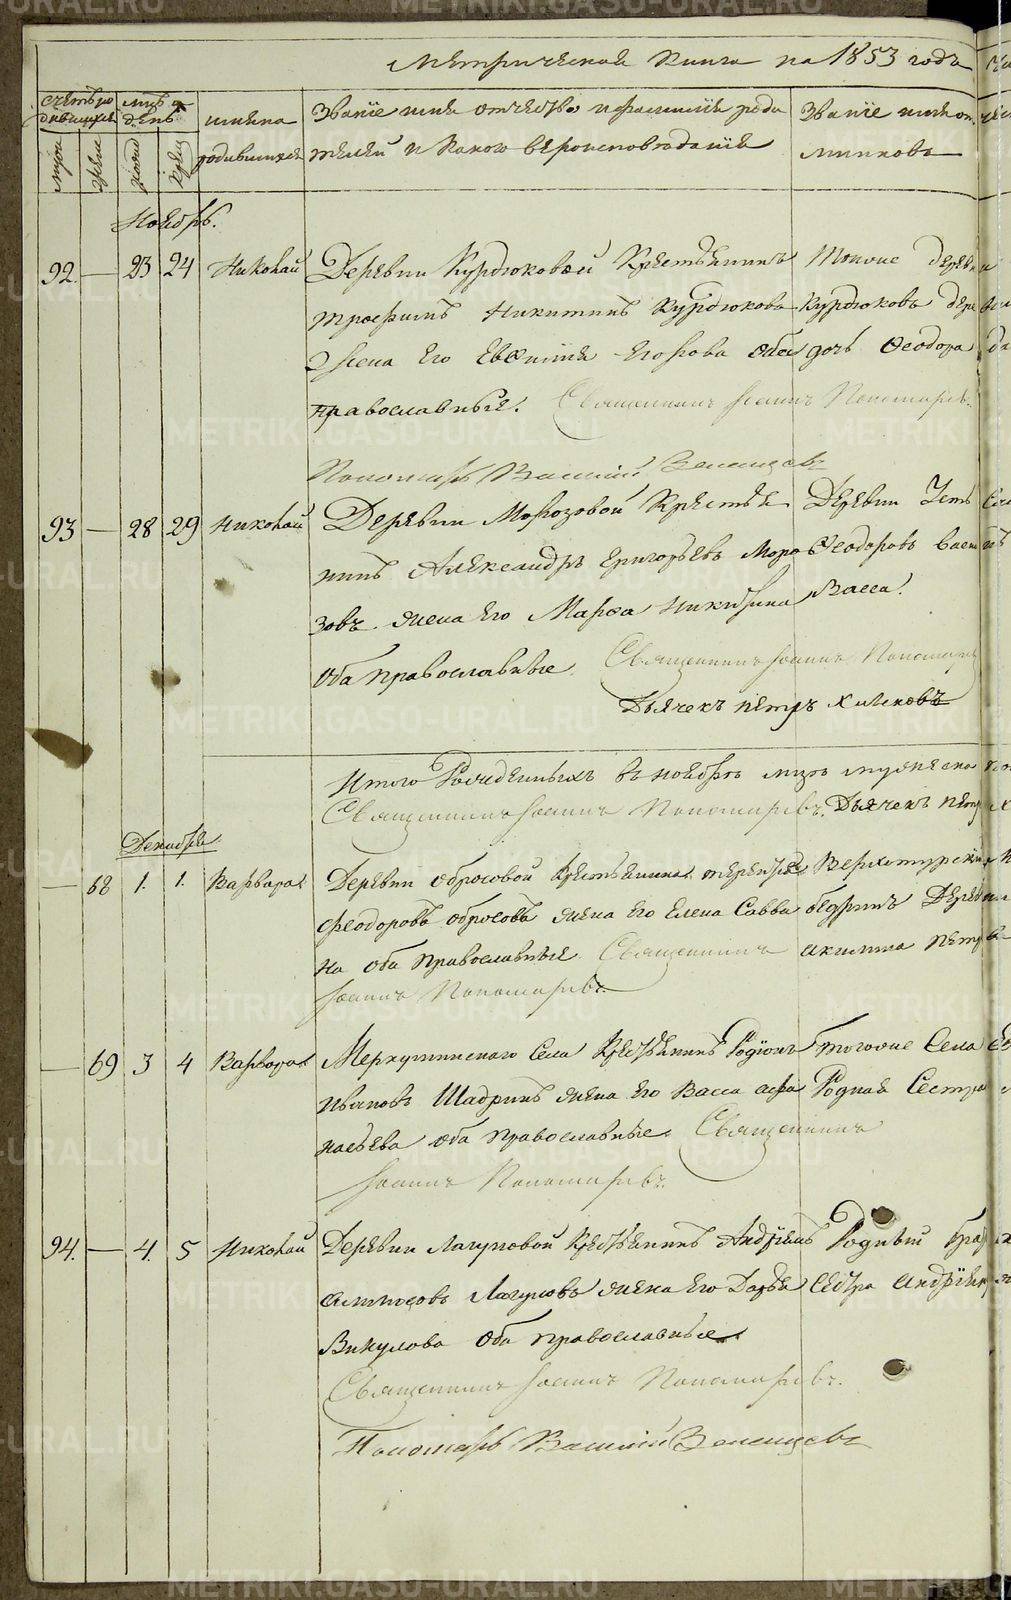 Метрическая Книга на 1853 годъ
счетъ ро
дившихся
мцъ и
день
имена
родившихся
Званіе имя отчество и фамилія роди
телей и какого вѣроисповѣданія
Званіе имя от
мужес
женс
рожд
крещ
Ноябрь.
92. — 23 24 Николай
Деревни Курдюковой Крестьянинъ
Трофимъ Никитинъ Курдюковъ
жена его Евѳимія Егорова оба
православныя. Священникъ Іоаннъ Пономаревъ.
Пономарь Василій Зеленцовъ
Тоюже деревни
Курдюковъ дере
дочь Ѳеодора
93 — 28 29 Николай
Деревни Морозовой Крестья
нинъ Александръ Григорьевъ Моро
зовъ жена его Марѳа Никитина
оба православные Священникъ Іоаннъ Пономарев
Дьячекъ Петръ Хлыновъ
Деревни Усть
Ѳеодоровъ
Васса.
Итого Рожденныхъ въ ноябрѣ мцѣ мужеска
Священникъ Іоаннъ Пономаревъ. Дьячекъ Петр
Декабрь
— 68 1. 1. Варвара
Деревни Обросовой Крестьянинъ Терентій
Феодоровъ Обросовъ жена его Елена Савви
на оба православныя Священникъ
Іоаннъ Пономаревъ.
Верхотурскій
Деревни
Акилина Петр
— 69 3 4 Варвара
Меркушинскаго Села Крестьянинъ Родіонъ
Ивановъ Шадринъ жена его Васса Афа
насьева оба православные Священникъ
Іоаннъ Пономаревъ.
тогоже Села
Родная Сестра
94. — 4. 5 Николай
Деревни Лагуновой Крестьянинъ Андріанъ
Лагуновъ жена его Дарья
Викулова оба православные
Священникъ Іоаннъ Пономаревъ.
Пономарь Василій Зеленцовъ
Родный брат
сестра Андріан
METRIKI.GASO-URAL.RU